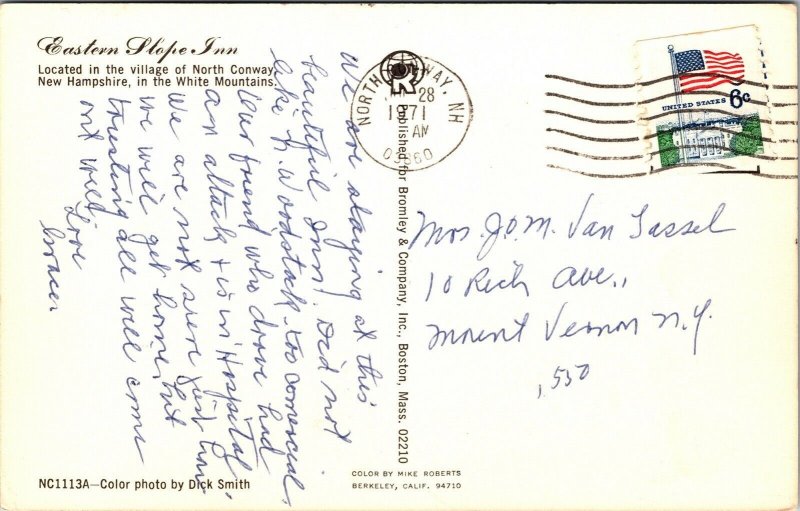 Eastern Slope Inn
Located in the village of North Conway,
New Hampshire, in the White Mountains.
We are staying at this
beautiful Inn. Did not
like N. Woodstock - too comercial.
Our friend who drove had
an attack & is in Hospital,
we are not sure just how
we will get home, but
trusting all will come
out well.
Love
Grace.
Published for Bromley & Company, Inc., Boston, Mass. 02210
NORTH CONWAY, NH
28
1971
AM
03860
UNITED STATES 6c
Mrs. J. M. Van Tassel
10 Rich Ave.,
Mount Vernon N.Y.
NC1113A—Color photo by Dick Smith
COLOR BY MIKE ROBERTS
BERKELEY, CALIF. 94710